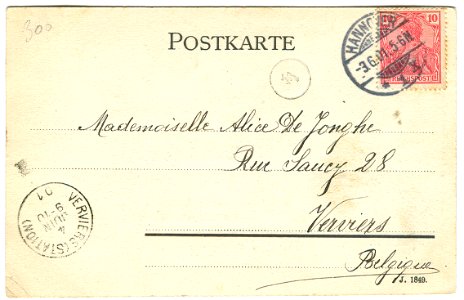 300
POSTKARTE
HANNOVER
-3.6.01.5-6N.
10
REICHSPOST
Mademoiselle Alice De Jonghe
Rue Saucy 28
Verviers
Belgique
VERVIERS (STATION)
9-10
JUIN
4
01
J. 1849.